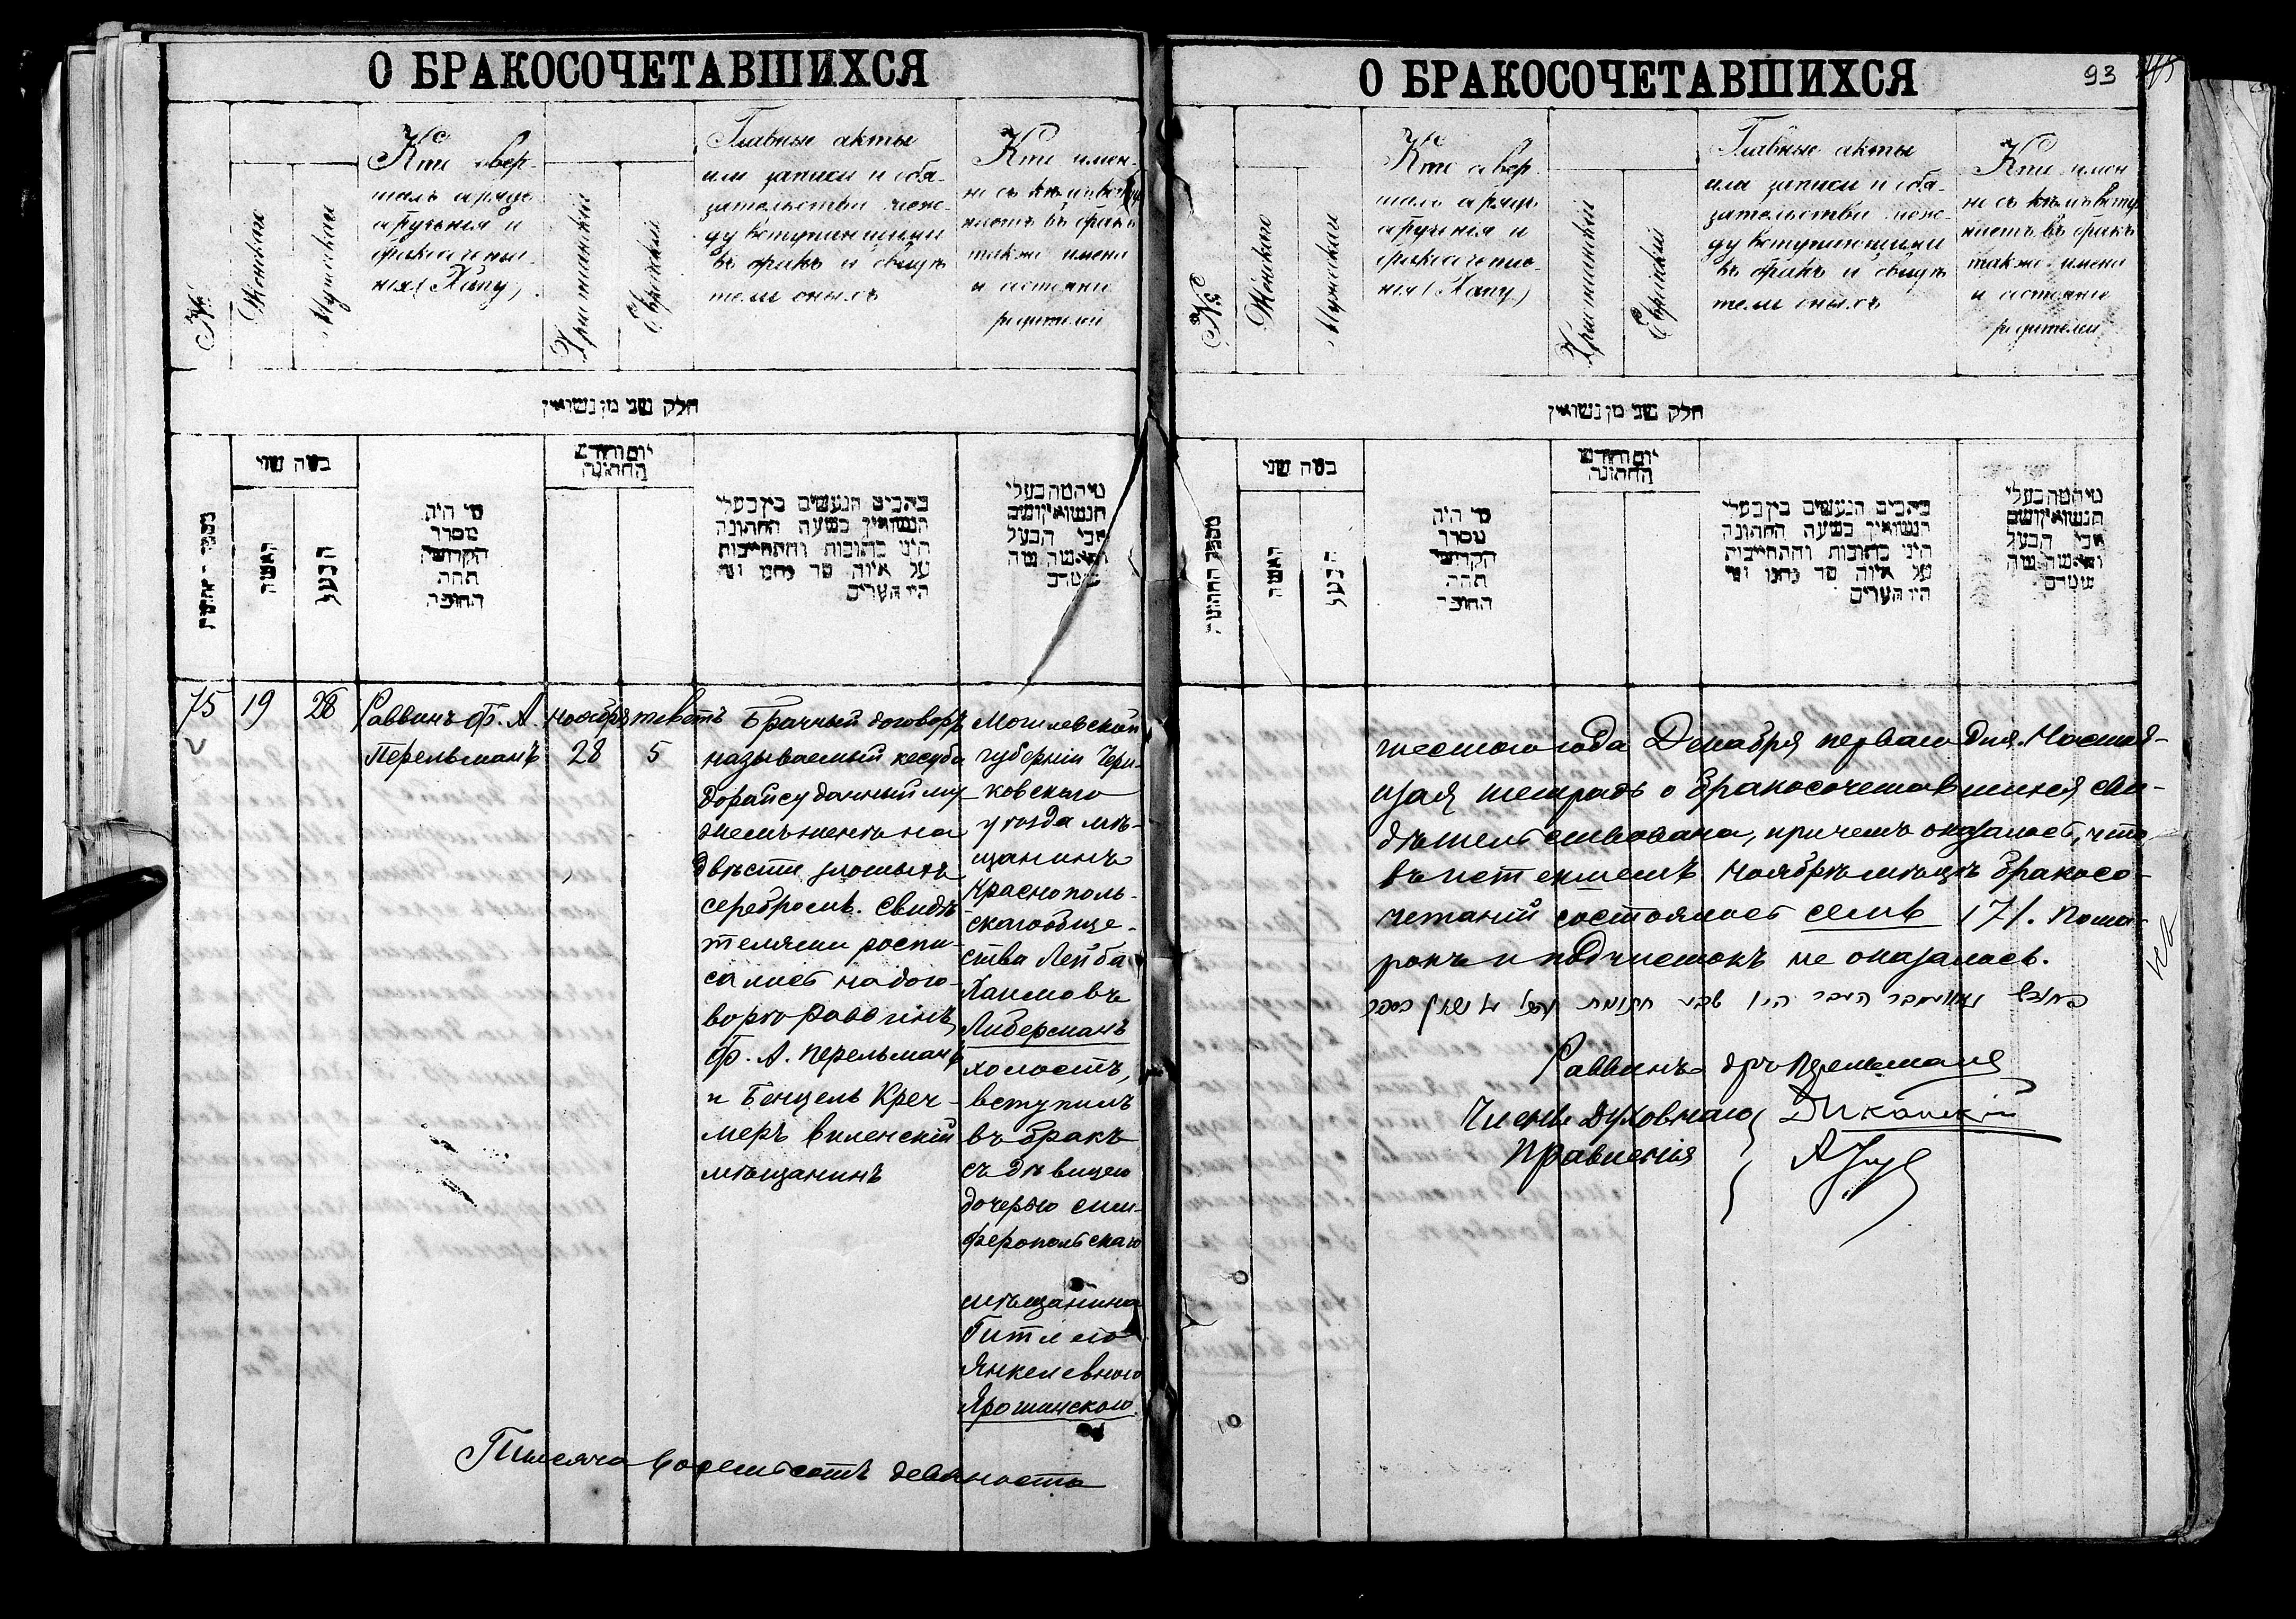 О БРАКОСОЧЕТАВШИХСЯ
№
Женская
Мужеская
Кто совер-
шалъ обрядъ
обрученія и
бракосочета-
нія (Хупу)
Христіанскій
Еврейскій
Главные акты
или записи и обя-
зательства меж-
ду вступившими
въ бракъ и свидѣ
тели оныхъ
Кто имен-
но съ кѣмъ вступ
аютъ въ бракъ
также имена
и состояніе
родителей
חלק שני מן נשואין
כמה שני
האשה
הבעל
מי היה
מסדר
הקדושין
תחת
החופה
יום וחודש
החתונה
כתבים הנעשים בין בעלי
הנשואין בשעה החתונה
היינו כתובות והתחייבות
על איזה סך נתנו ומי
היו העדים
75
19
28
Раввинъ Ф. А.
Перельманъ
Ноября
28
теветъ
5
Брачный договоръ
называемый кесуба
дорайсу данный му
жемъ женѣ на
двѣсти злотыхъ
серебромъ. Свидѣ
телями роспи-
сались на дого-
ворѣ Раввинъ
Ф. А. Перельманъ
и Бенцель Креч-
меръ виленскій
мѣщанинъ
Могилевской
губерніи Чери-
ковскаго
уѣзда мѣ-
щанинъ
Краснополь-
скаго обще-
ства Лейба
Хаимовъ
Либерманъ
холостъ,
вступилъ
въ бракъ
съ дѣвицею
дочерью сим-
феропольскаго
мѣщанина
Гитлею
Янкелевною
Ярошинскою.
Тысяча восемьсотъ девяносто
О БРАКОСОЧЕТАВШИХСЯ
93
№
Женская
Мужеская
Кто совер-
шалъ обрядъ
обрученія и
бракосочета-
нія (Хупу)
Христіанскій
Еврейскій
Главные акты
или записи и обя-
зательства меж-
ду вступающими
въ бракъ и свидѣ
тели оныхъ
Кто имен
но съ кѣмъ вступ
аютъ въ бракъ
также имена
и состояніе
родителей
חלק שני מן נשואין
כמה שני
מספר החתונה
האשה
הבעל
מי היה
מסדר
הקדושין
תחת
החופה
יום וחודש
החתונה
כתבים הנעשים בין בעלי
הנשואין בשעה החתונה
היינו כתובות והתחייבות
על איזה סך נתנו ומי
היו העדים
шестого года Декабря перваго дня. Настоя-
щая тетрадь о бракосочетавшихся сви-
дѣтельствована, причемъ оказалось, что
въ истекшемъ Ноябрѣ мѣсяцѣ бракосо-
четаній состоялось семь /7/. Пома-
рокъ и подчистокъ не оказалось.
Раввинъ др Перельманъ
Члены Духовнаго
Правленія